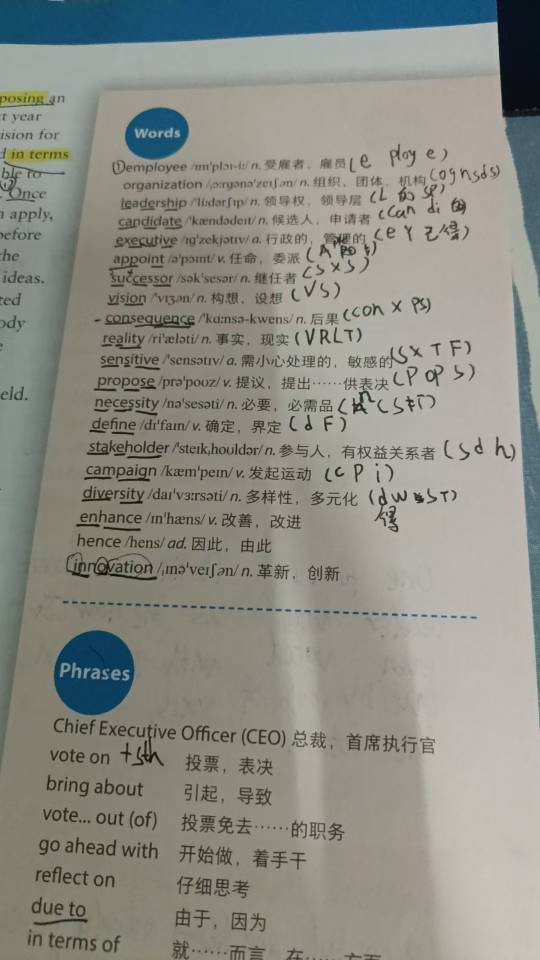 posing an
t year
ision for
d in terms
ble to
. Once
n apply,
before
the
ideas.
ted
ody
eld.
Words
①employee /ɪmˈplɔɪ-iː/ n. 受雇者，雇员(e ploy e)
organization /ˌɔːrɡənəˈzeɪʃən/ n. 组织，团体，机构
leadership /ˈliːdərʃɪp/ n. 领导权，领导层
candidate /ˈkændədeɪt/ n. 候选人，申请者
executive /ɪɡˈzekjətɪv/ a. 行政的，管理的
appoint /əˈpɔɪnt/ v. 任命，委派
successor /səkˈsesər/ n. 继任者(SXS)
vision /ˈvɪʒən/ n. 构想，设想(VS)
consequence /ˈkɑːnsə-kwens/ n. 后果(con X PS)
reality /riˈæləti/ n. 事实，现实(VRLT)
sensitive /ˈsensətɪv/ a. 需小心处理的，敏感的(SXTF)
propose /prəˈpoʊz/ v. 提议，提出……供表决(POPS)
necessity /nəˈsesəti/ n. 必要，必需品
define /dɪˈfaɪn/ v. 确定，界定(dF)
stakeholder /ˈsteɪkˌhoʊldər/ n. 参与人，有权益关系者(sdh)
campaign /kæmˈpeɪn/ v. 发起运动(cPi)
diversity /daɪˈvɜːrsəti/ n. 多样性，多元化
enhance /ɪnˈhæns/ v. 改善，改进 得
hence /hens/ ad. 因此，由此
innovation /ˌɪnəˈveɪʃən/ n. 革新，创新
Phrases
Chief Executive Officer (CEO) 总裁，首席执行官
vote on +sth 投票，表决
bring about 引起，导致
vote... out (of) 投票免去……的职务
go ahead with 开始做，着手干
reflect on 仔细思考
due to 由于，因为
in terms of 就……而言，在……方面